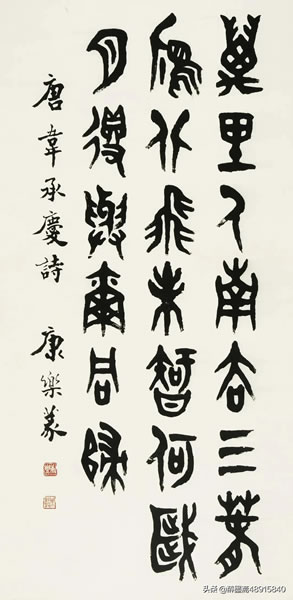 萬里人南去三春
鴈北飛未智何歲
月得與爾同歸
唐韋承慶詩 康樂
头条 48915840